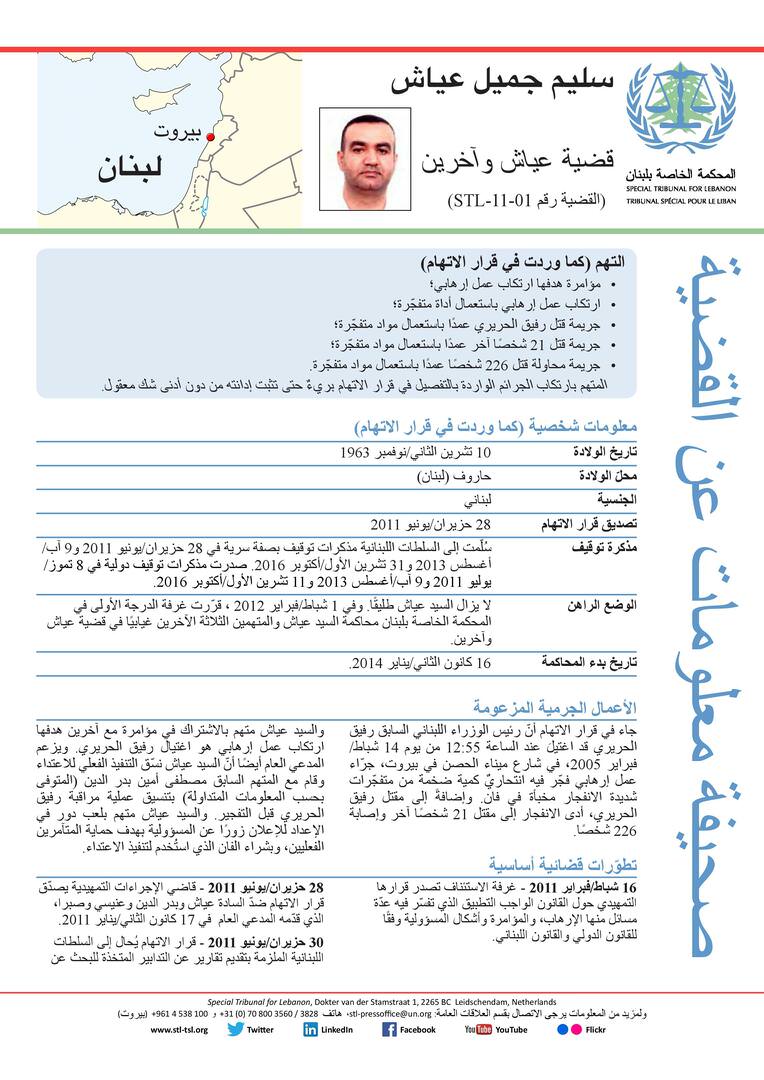 سليم جميل عياش
قضية عياش وآخرين
(القضية رقم STL-11-01)
المحكمة الخاصة بلبنان
SPECIAL TRIBUNAL FOR LEBANON
TRIBUNAL SPÉCIAL POUR LE LIBAN
بيروت
لبنان
صحيفة معلومات عن القضية
التهم (كما وردت في قرار الاتهام)
• مؤامرة هدفها ارتكاب عمل إرهابي؛
• ارتكاب عمل إرهابي باستعمال أداة متفجّرة؛
• جريمة قتل رفيق الحريري عمدًا باستعمال مواد متفجّرة؛
• جريمة قتل 21 شخصًا آخر عمدًا باستعمال مواد متفجّرة؛
• جريمة محاولة قتل 226 شخصًا عمدًا باستعمال مواد متفجّرة.
المتهم بارتكاب الجرائم الواردة بالتفصيل في قرار الاتهام بريءٌ حتى تثبت إدانته من دون أدنى شك معقول.
معلومات شخصية (كما وردت في قرار الاتهام)
تاريخ الولادة 10 تشرين الثاني/نوفمبر 1963
محلّ الولادة حاروف (لبنان)
الجنسية لبناني
تصديق قرار الاتهام 28 حزيران/يونيو 2011
مذكرة توقيف سُلّمت إلى السلطات اللبنانية مذكرات توقيف بصفة سرية في 28 حزيران/يونيو 2011 و9 آب/
أغسطس 2013 و31 تشرين الأول/أكتوبر 2016. صدرت مذكرات توقيف دولية في 8 تموز/
يوليو 2011 و9 آب/أغسطس 2013 و11 تشرين الأول/أكتوبر 2016.
الوضع الراهن لا يزال السيد عياش طليقًا. وفي 1 شباط/فبراير 2012 ، قرّرت غرفة الدرجة الأولى في
المحكمة الخاصة بلبنان محاكمة السيد عياش والمتهمين الثلاثة الآخرين غيابيًا في قضية عياش
وآخرين.
تاريخ بدء المحاكمة 16 كانون الثاني/يناير 2014.
الأعمال الجرمية المزعومة
جاء في قرار الاتهام أنّ رئيس الوزراء اللبناني السابق رفيق
الحريري قد اغتيل عند الساعة 12:55 من يوم 14 شباط/
فبراير 2005، في شارع ميناء الحصن في بيروت، جرّاء
عمل إرهابي فجّر فيه انتحاريٌ كمية ضخمة من متفجّرات
شديدة الانفجار مخبأة في فان. وإضافةً إلى مقتل رفيق
الحريري، أدى الانفجار إلى مقتل 21 شخصًا آخر وإصابة
226 شخصًا.
والسيد عياش متهم بالاشتراك في مؤامرة مع آخرين هدفها
ارتكاب عمل إرهابي هو اغتيال رفيق الحريري. ويزعم
المدعي العام أيضًا أنّ السيد عياش نسّق التنفيذ الفعلي للاعتداء
وقام مع المتهم السابق مصطفى أمين بدر الدين (المتوفى
بحسب المعلومات المتداولة) بتنسيق عملية مراقبة رفيق
الحريري قبل التفجير. والسيد عياش متهم بلعب دور في
الإعداد للإعلان زورًا عن المسؤولية بهدف حماية المتآمرين
الفعليين، وبشراء الفان الذي استُخدم لتنفيذ الاعتداء.
تطوّرات قضائية أساسية
16 شباط/فبراير 2011 - غرفة الاستئناف تصدر قرارها
التمهيدي حول القانون الواجب التطبيق الذي تفسّر فيه عدّة
مسائل منها الإرهاب، والمؤامرة وأشكال المسؤولية وفقًا
للقانون الدولي والقانون اللبناني.
28 حزيران/يونيو 2011 - قاضي الإجراءات التمهيدية يصدّق
قرار الاتهام ضدّ السادة عياش وبدر الدين وعنيسي وصبرا،
الذي قدّمه المدعي العام في 17 كانون الثاني/يناير 2011.
30 حزيران/يونيو 2011 - قرار الاتهام يُحال إلى السلطات
اللبنانية الملزمة بتقديم تقارير عن التدابير المتخذة للبحث عن
Special Tribunal for Lebanon, Dokter van der Stamstraat 1, 2265 BC Leidschendam, Netherlands
ولمزيد من المعلومات يرجى الاتصال بقسم العلاقات العامة: stl-pressoffice@un.org، هاتف +31 (0) 70 800 3560 / 3828 و +961 4 538 100 (بيروت)
www.stl-tsl.org Twitter LinkedIn Facebook YouTube Flickr